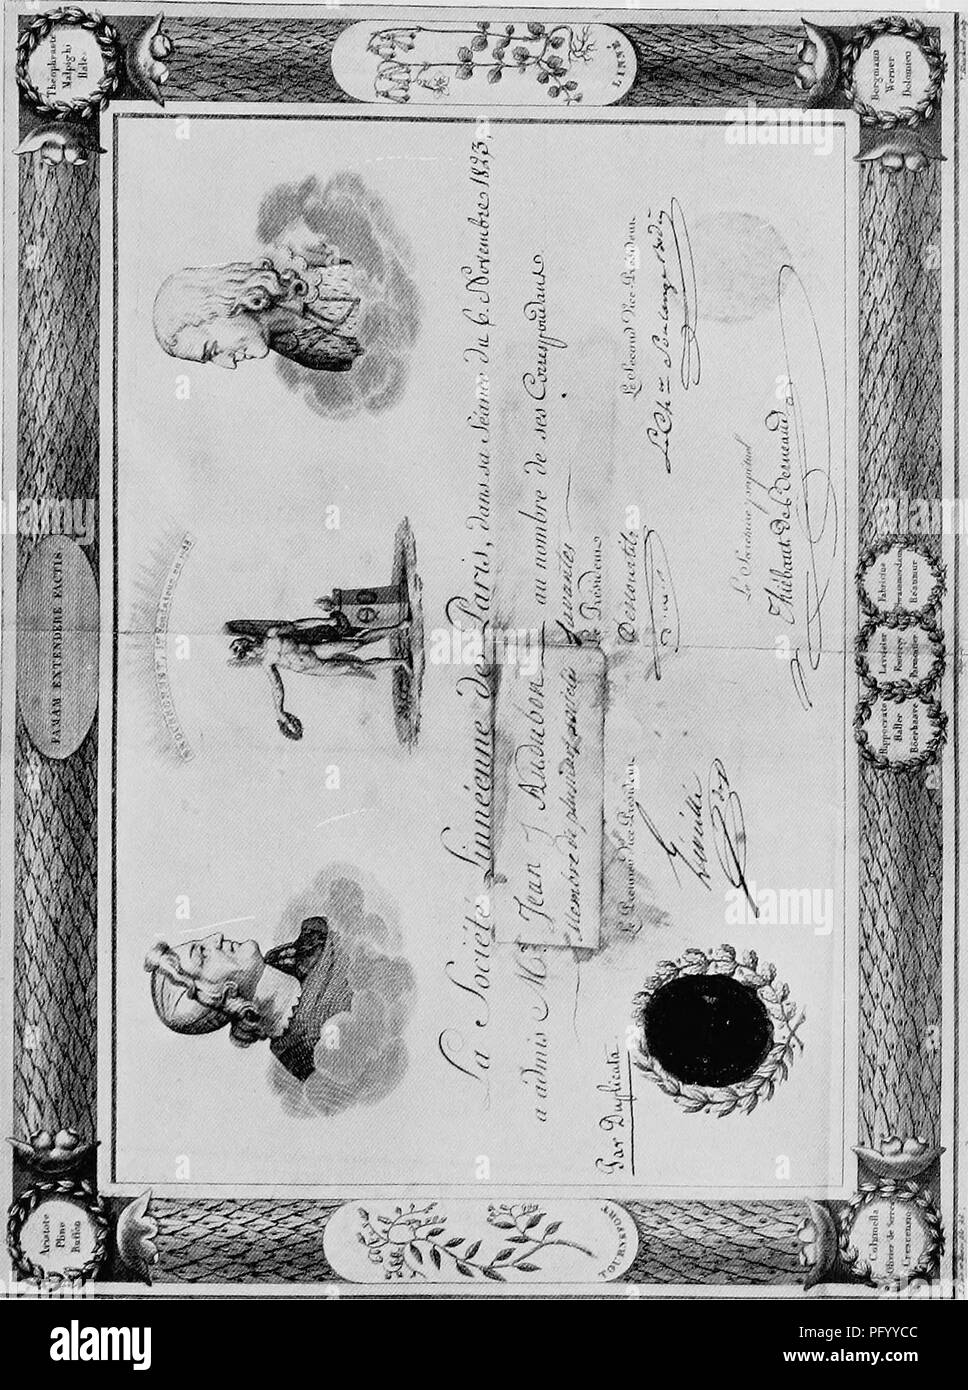 FAMAM EXTENDERE FACTIS
Aristote
Pline
Buffon
Théophraste
Malpighi
Hale
TOURNEFORT
LINNÉ
La Société Linnéenne de Paris, dans sa Séance du 6 Novembre 1823,
a admis Mr Jean J Audubon au nombre de ses Correspondans
Membre de plusieurs sociétés savantes
Par Duplicata.
Le Premier Vice-Président
Le Président
Le Second Vice-Président
Le Secrétaire perpétuel
Thiébaut de Berneaud
Columella
Olivier de Serres
Crescenzio
Hippocrate
Haller
Böerhaave
Lavoisier
Fourcroy
Parmentier
Fabricius
Swammerdam
Réaumur
Bergmann
Werner
Dolomieu
alamy
alamy
alamy
Image ID: PFYYCC
www.alamy.com